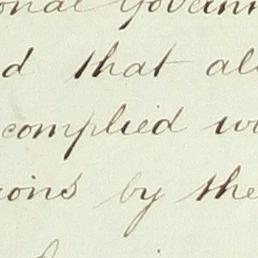 onal Govern
d that al
complied w
ions by the